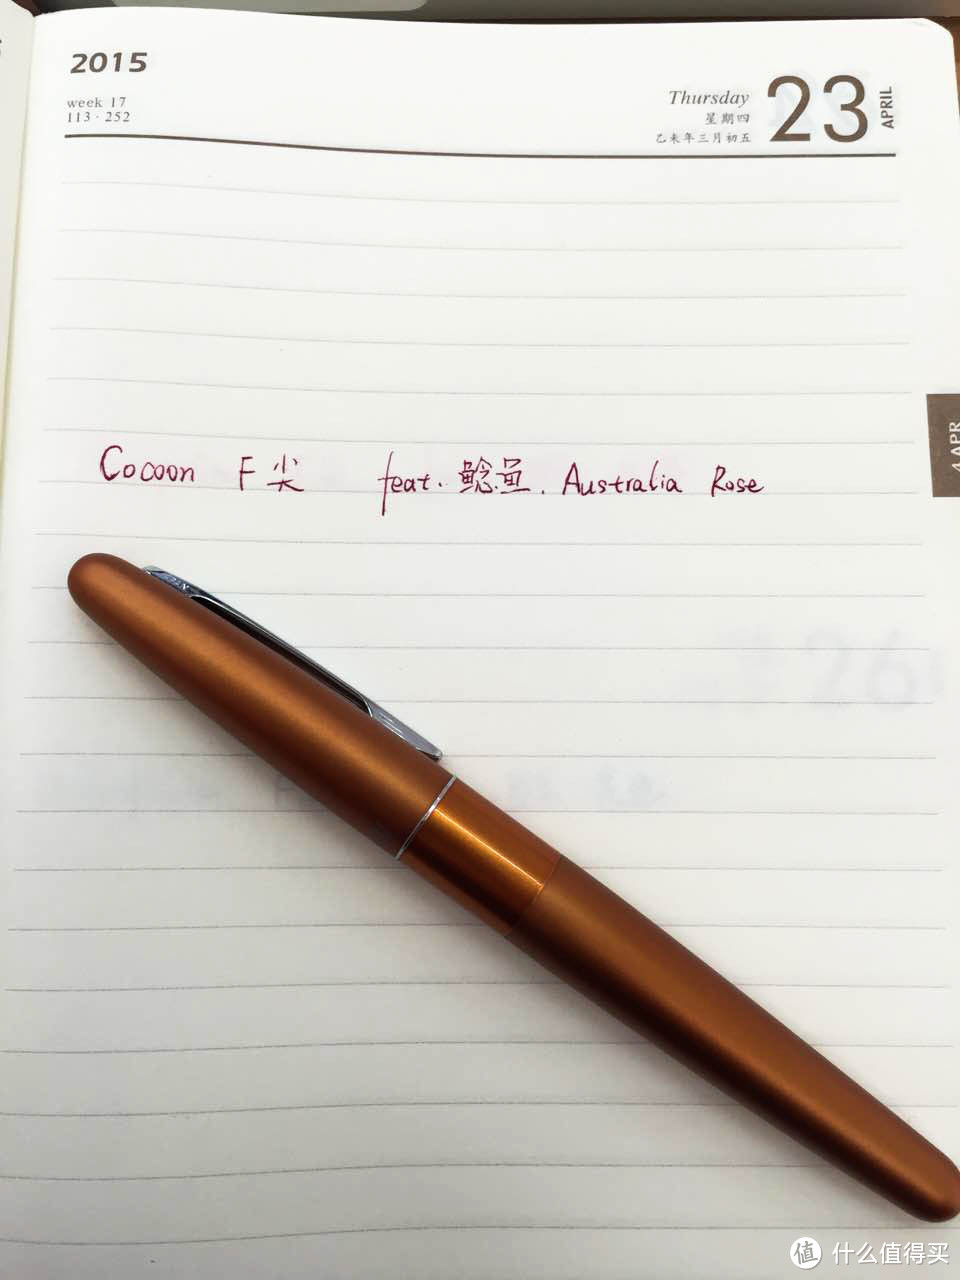 2015
week 17
113 · 252
Thursday
星期四
乙未年三月初五
23
APRIL
4 APR
Cocoon F尖 feat. 鲶鱼. Australia Rose
值 什么值得买